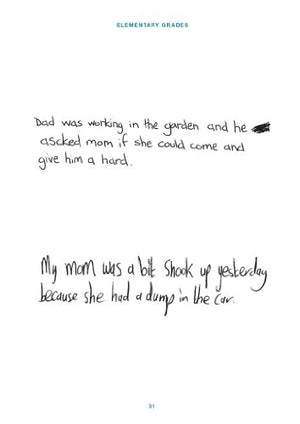 ELEMENTARY GRADES
Dad was working in the garden and he
ascked mom if she could come and
give him a hard.
My mom was a bit shook up yesterday
because she had a dump in the car.
31